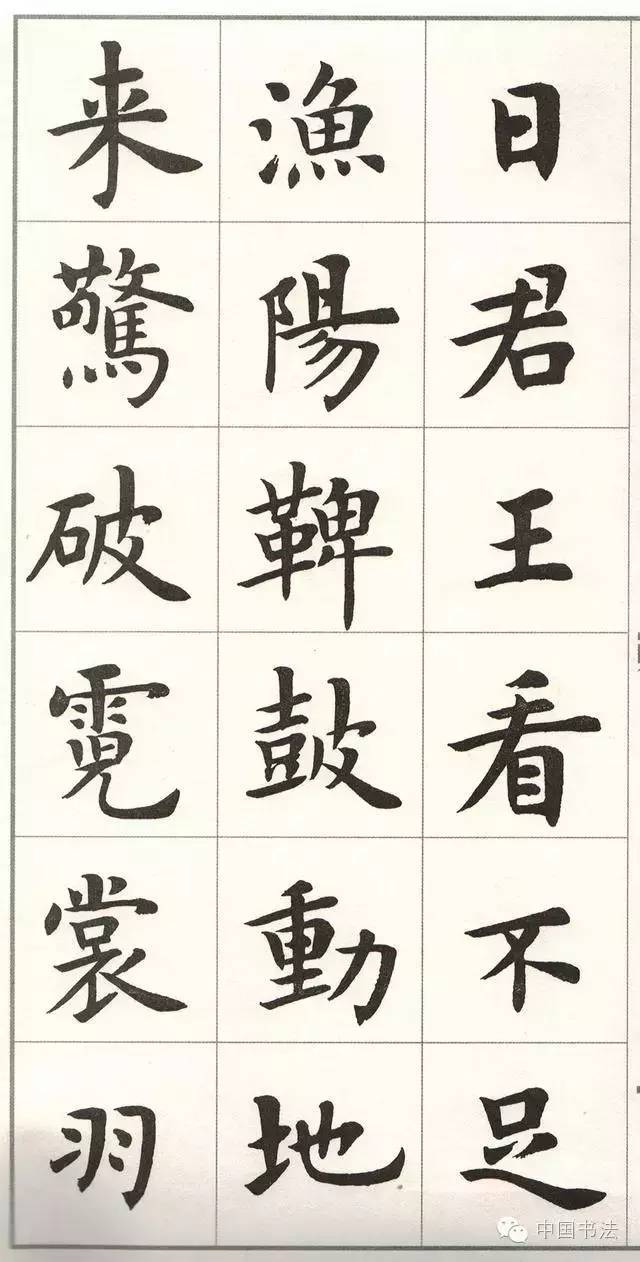 日君王看不足
漁陽鞞鼓動地
来驚破霓裳羽
中国书法